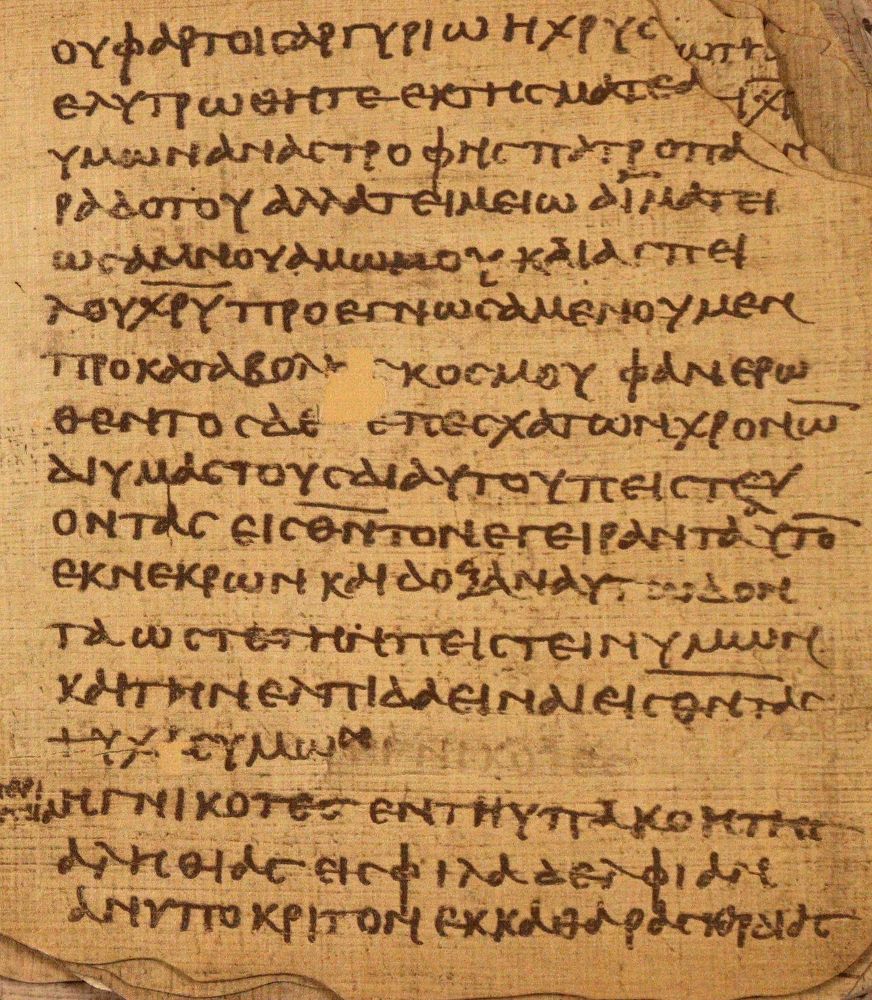 ΟΥΦΑΡΤΟΙϹΑΡΓΥΡΙΩ Η ΧΡΥϹ
ΕΛΥΤΡΩΘΗΤΕ ΕΚ ΤΗϹ ΜΑΤΕΑ
ΥΜΩΝ ΑΝΑϹΤΡΟΦΗϹ ΠΑΤΡΟΠΑ
ΡΑΔΟΤΟΥ ΑΛΛΑ ΤΕΙΜΕΙΩ ΑΙΜΑΤΕΙ
ΩϹ ΑΜΝΟΥ ΑΜΩΜΟΥ ΚΑΙ ΑϹΠΕΙ
ΛΟΥ Χ̅Ρ̅Υ̅ ΠΡΟΕΓΝΩϹΑΜΕΝΟΥ ΜΕΝ
ΠΡΟ ΚΑΤΑΒΟΛ Υ ΚΟϹΜΟΥ ΦΑΝΕΡΩ
ΘΕΝΤΟϹ ΔΕ ΕΠ ΕϹΧΑΤΩΝ ΧΡΟΝΩ̅
ΔΙ ΥΜΑϹ ΤΟΥϹ ΔΙ ΑΥΤΟΥ ΠΕΙϹΤΕΥ
ΟΝΤΑϹ ΕΙϹ Θ̅Ν̅ ΤΟΝ ΕΓΕΙΡΑΝΤΑ ΑΥΤΟ̅
ΕΚ ΝΕΚΡΩΝ ΚΑΙ ΔΟΞΑΝ ΑΥΤΩ ΔΟΝ
ΤΑ ΩϹΤΕ ΤΗΝ ΠΕΙϹΤΕΙΝ ΥΜΩΝ
ΚΑΙ ΤΗΝ ΕΛΠΙΔΑ ΕΙΝΑΙ ΕΙϹ Θ̅Ν̅ ΤΑϹ
ΨΥΧ Ϲ ΥΜΩΝ
ΗΓΝΙΚΟΤΕϹ ΕΝ ΤΗ ΥΠΑΚΟΗ ΤΗϹ
ΑΛΗΘΙΑϹ ΕΙϹ ΦΙΛΑΔΕΛΦΙΑΝ
ΑΝΥΠΟΚΡΙΤΟΝ ΕΚ ΚΑΘΑΡΑϹ ΚΘΡΔΙΑϹ